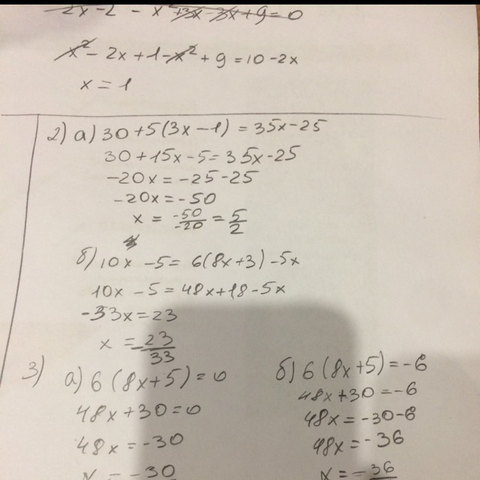 2x-2 - x²+3x-3x+9=0
x² - 2x+1-x²+9=10-2x
x=1
2) а) 30+5(3x-1)=35x-25
30+15x-5=35x-25
-20x=-25-25
-20x=-50
x = -50/-20 = 5/2
б) 10x -5= 6(8x+3)-5x
10x-5=48x+18-5x
-33x=23
x = -23/33
3) а) 6(8x+5)=0
48x+30=0
48x=-30
x = -30
б) 6(8x+5)=-6
48x+30=-6
48x=-30-6
48x=-36
x = -36